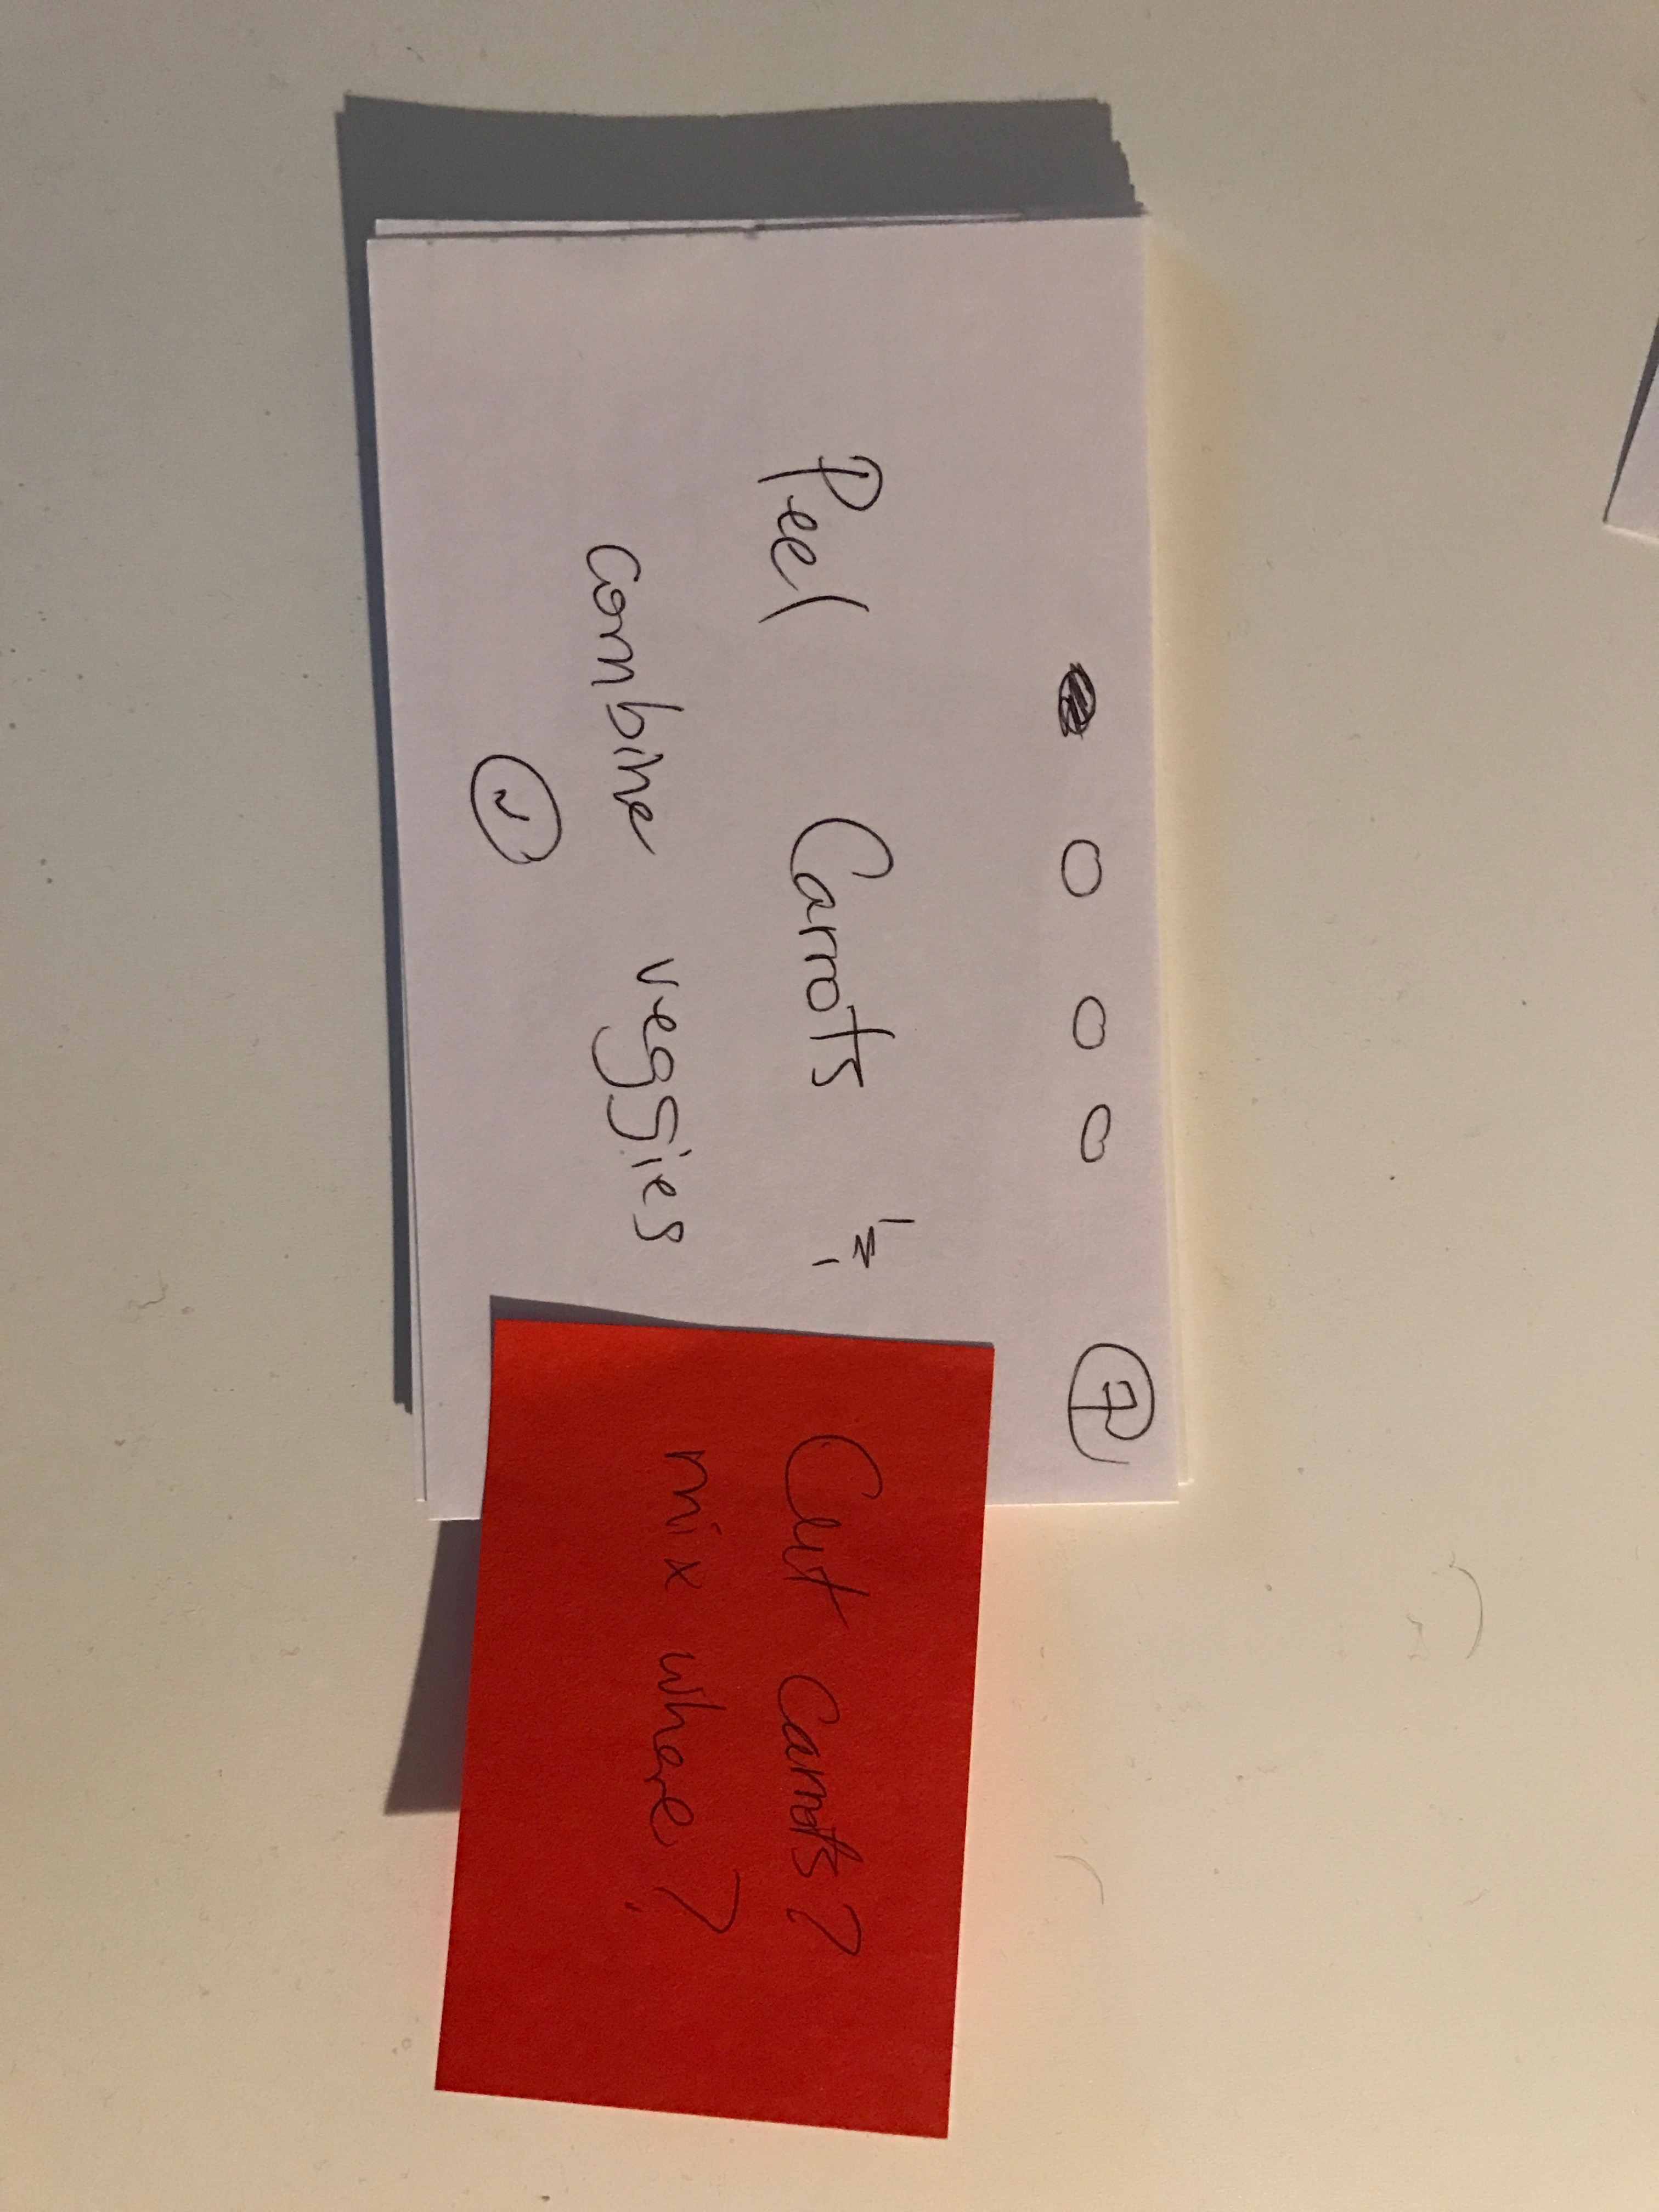 Peel Carrots
combine veggies
Cut carrots?
mix where?